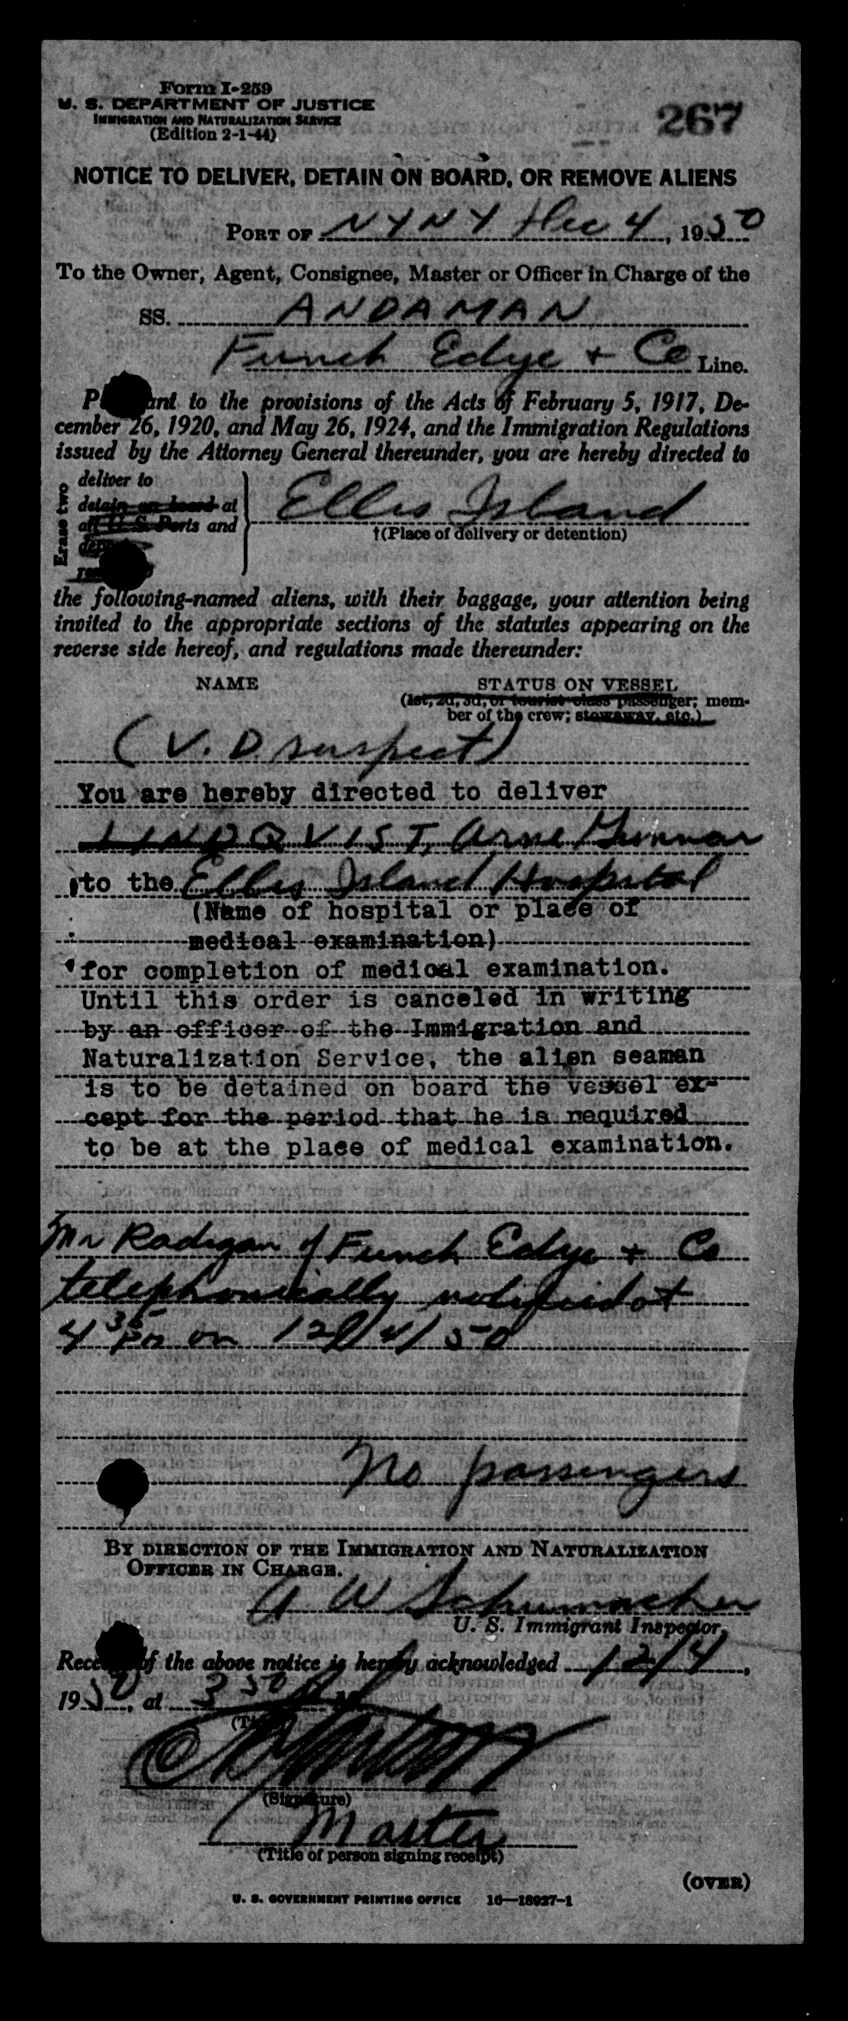 Form I-259
U. S. DEPARTMENT OF JUSTICE
IMMIGRATION AND NATURALIZATION SERVICE
(Edition 2-1-44)
267
NOTICE TO DELIVER, DETAIN ON BOARD, OR REMOVE ALIENS
PORT OF NYNY Dec 4, 1950
To the Owner, Agent, Consignee, Master or Officer in Charge of the
SS. ANDAMAN
Funch Edye + Co Line.
P ant to the provisions of the Acts of February 5, 1917, De-
cember 26, 1920, and May 26, 1924, and the Immigration Regulations
issued by the Attorney General thereunder, you are hereby directed to
Erase two
deliver to
detain on board at
all U. S. Ports and
Ellis Island
†(Place of delivery or detention)
the following-named aliens, with their baggage, your attention being
invited to the appropriate sections of the statutes appearing on the
reverse side hereof, and regulations made thereunder:
NAME STATUS ON VESSEL
(1st, 2d, 3d, or tourist class passenger; mem-
ber of the crew; stowaway, etc.)
(V. D suspect)
You are hereby directed to deliver
LINDQVIST, Arne Gunnar
to the Ellis Island Hospital
(Name of hospital or place of
medical examination)
for completion of medical examination.
Until this order is canceled in writing
by an officer of the Immigration and
Naturalization Service, the alien seaman
is to be detained on board the vessel ex-
cept for the period that he is required
to be at the place of medical examination.
Mr Radigan of Funch Edye + Co
telephonically notified at
4 35 Pm on 12/4/50
No passengers
BY DIRECTION OF THE IMMIGRATION AND NATURALIZATION
OFFICER IN CHARGE.
A W Schumacher
U. S. Immigrant Inspector.
Rece of the above notice is hereby acknowledged 12/4,
1950, at 3 50 P M
(Signature)
Master
(Title of person signing receipt)
(OVER)
U. S. GOVERNMENT PRINTING OFFICE 16—18927-1